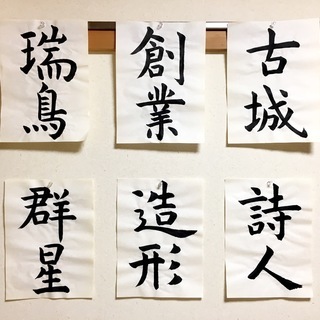 古城
創業
瑞鳥
詩人
造形
群星